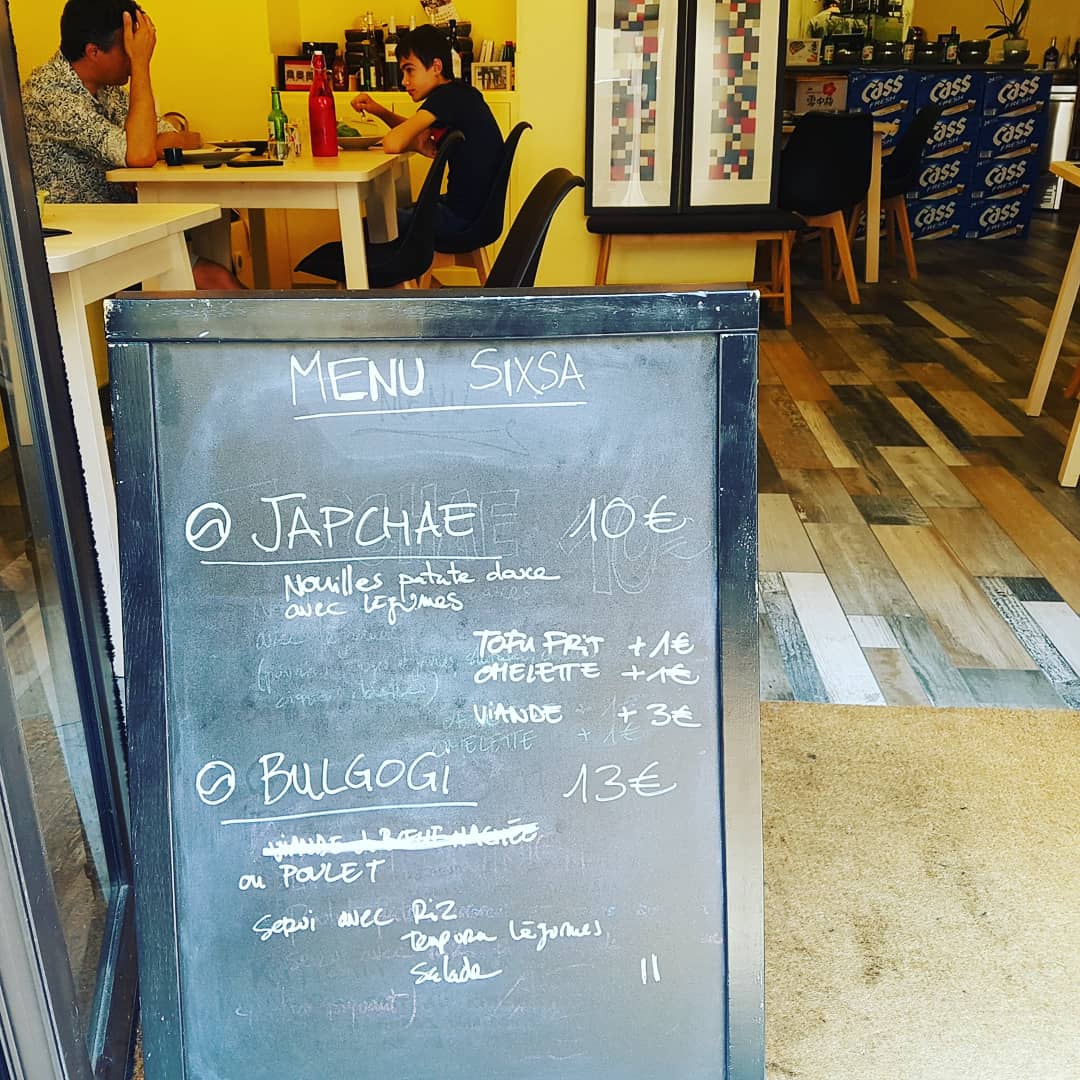 Cass
FRESH
Cass
FRESH
Cass
FRESH
Cass
Cass
Cass
FRESH
Cass
Cass
FRESH
Cass
MENU SIXSA
JAPCHAE 10€
Nouilles patate douce
avec légumes
TOFU FRIT +1€
OMELETTE +1€
VIANDE +3€
OMELETTE +1€
BULGOGI 13€
VIANDE de BŒUF HACHÉE
ou POULET
Servi avec RIZ
Tempora légumes
Salade 11